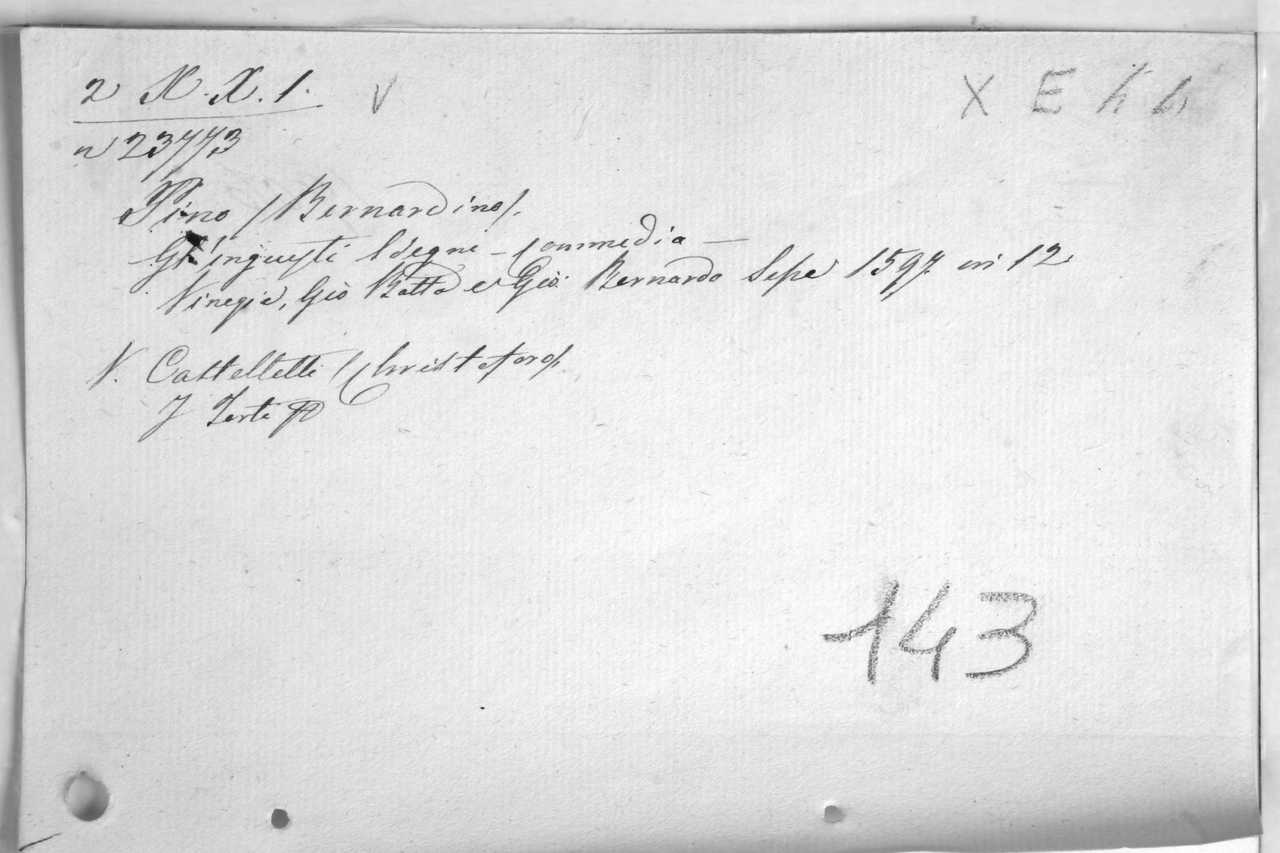 2 X. X. 1. V
X E
n 23773
Pino (Bernardino).
Gl'ingiusti Sdegni – Commedia –
Vinegia, Giò Batta e Giò: Bernardo Sessa 1597. in 12
V. Castelletti (Christoforo).
I Torti
143